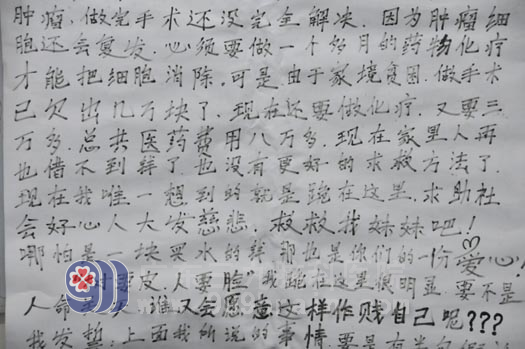 肿瘤,做完手术还没完全解决.因为肿瘤细
胞还会复发.必须要做一个多月的药物化疗
才能把细胞消除.可是由于家境贫困.做手术
已欠出几万块了.现在还要做化疗.又要三
万多.总共医药费用八万多.现在家里人再
也借不到钱了.也没有更好的求救方法了.
现在我唯一想到的就是跪在这里.求助社
会好心人大发慈悲.救救我妹妹吧!
哪怕是一块买水的钱那也是你们的一份爱心!
树要皮,人要脸"我跪在这里很明显.要不是
人命关天,谁又会愿意这样作贱自己呢???
我发誓.上面我所说的事情.要是有半句假话
91